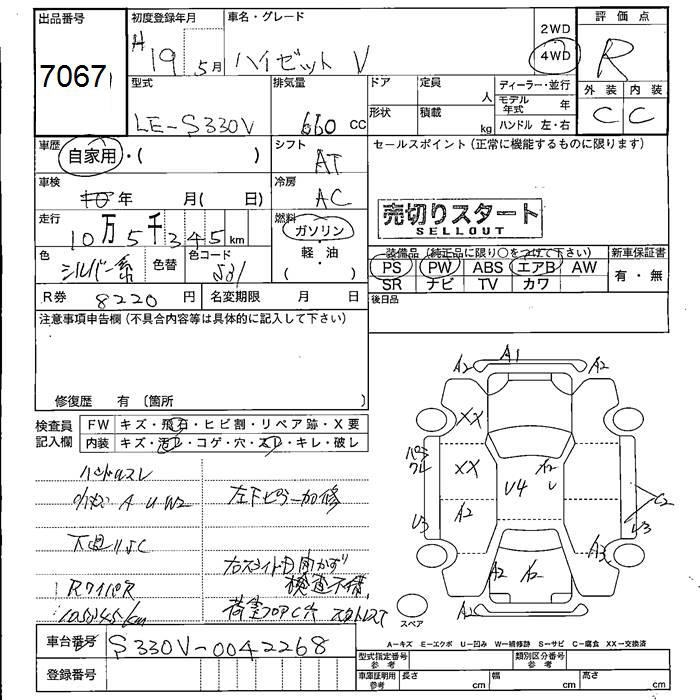 出品番号
7067
初度登録年月
H 19 5月
車名・グレード
ハイゼット V
2WD
4WD
評価点
R
外装 内装
C C
型式
LE-S330V
排気量
660 cc
ドア
形状
定員
人
積載
kg
ディーラー・並行
モデル年式 年
ハンドル 左・右
車歴
自家用・( )
シフト
AT
セールスポイント(正常に機能するものに限ります)
売切りスタート
SELLOUT
車検
年 月( 日)
冷房
AC
走行
10万5千345km
燃料
ガソリン
・
軽・油
色
シルバー系
色替
色コード
装備品(純正品に限り○をつけて下さい)
PS PW ABS エアB AW
SR ナビ TV カワ
新車保証書
有・無
R券 8220 円
名変期限 月 日
後日品
注意事項申告欄(不具合内容等は具体的に記入して下さい)
修復歴 有〔箇所
検査員記入欄
FW キズ・飛石・ヒビ割・リペア跡・X要
内装 キズ・汚レ・コゲ・穴・スレ・キレ・破レ
ハンドルスレ
A U W2
左下ピラー加修
下廻りSC
右スライド日開かず
検査不備
Rワイパ R
105345km
荷室フロアC穴
A2 A1 A2
XX
XX
A2
U4
A2
U
U3
C2
U3
A3
A2
A2
A2
スペア
A-キズ E-エクボ U-凹み W-補修跡 S-サビ C-腐食 XX-交換済
車台番号
S330V-0042268
登録番号
型式指定番号 参考
類別区分番号 参考
車庫証明用 参考
長さ cm
幅 cm
高さ cm